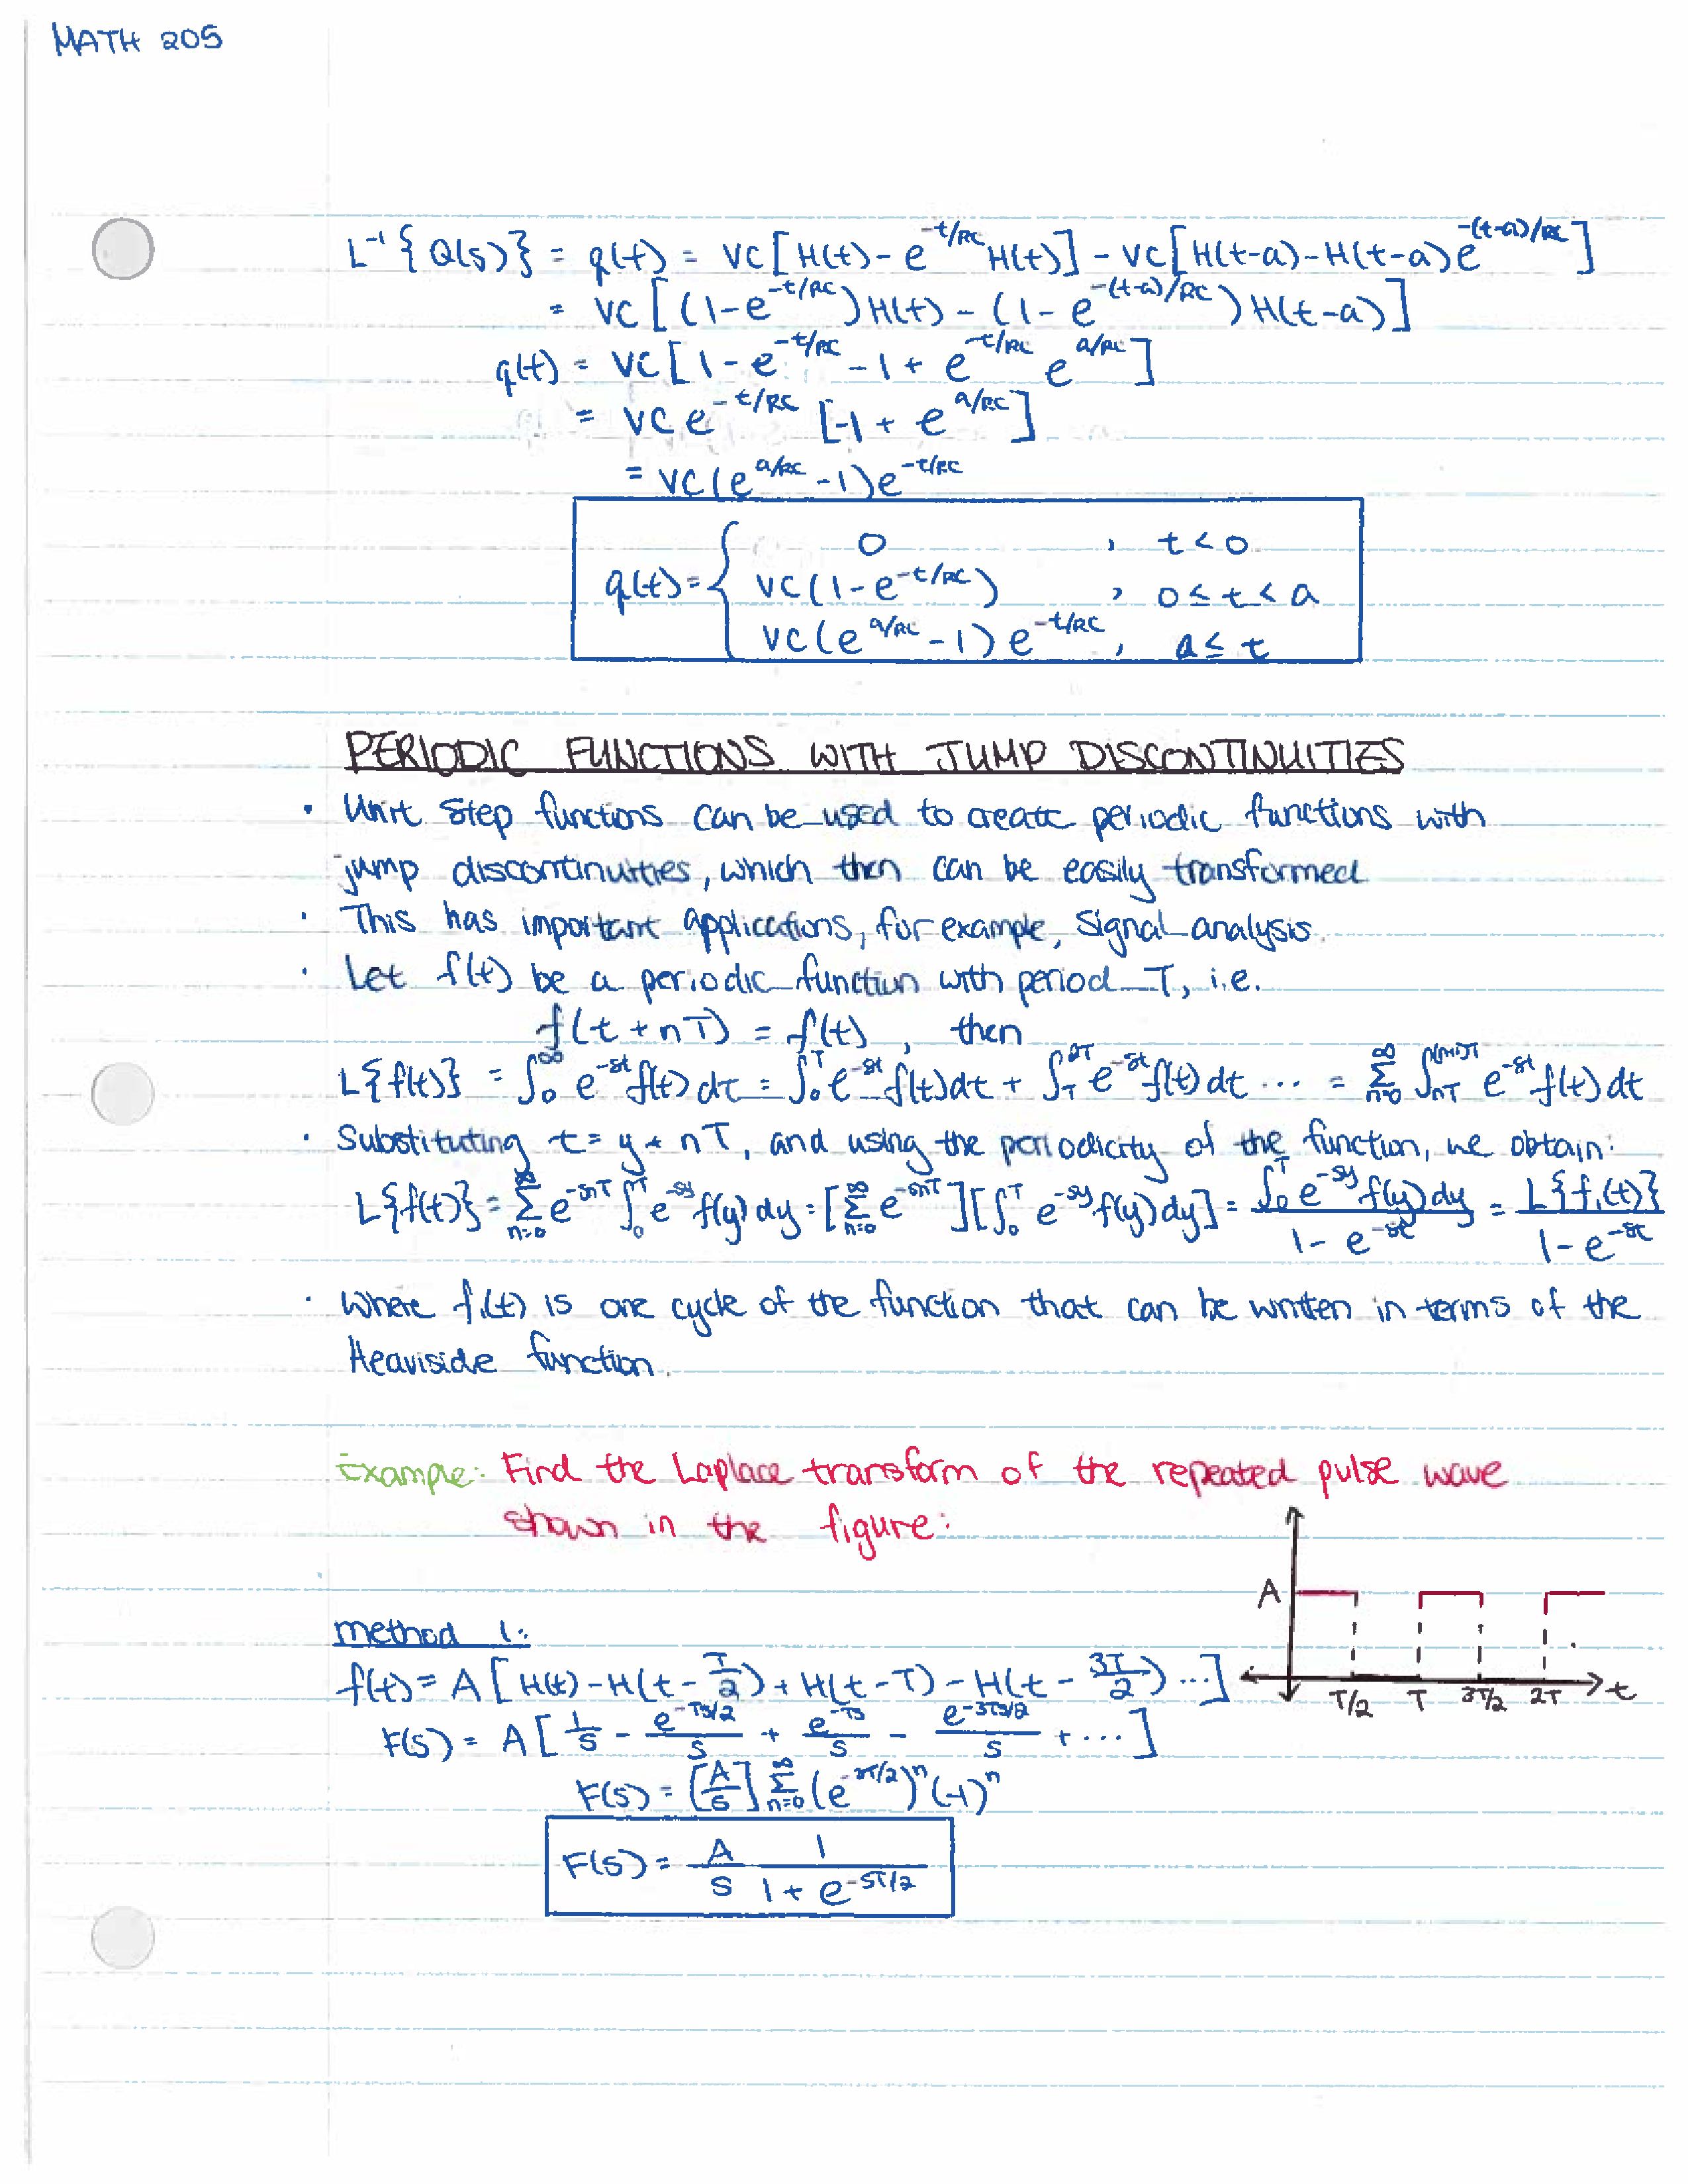 MATH 205
L⁻¹{Q(s)} = q(t) = VC[H(t) - e^(-t/RC) H(t)] - VC[H(t-a) - H(t-a)e^(-(t-a)/RC)]
= VC[(1-e^(-t/RC))H(t) - (1-e^(-(t-a)/RC))H(t-a)]
q(t) = VC[1 - e^(-t/RC) - 1 + e^(-t/RC) e^(a/RC)]
= VC e^(-t/RC) [-1 + e^(a/RC)]
= VC(e^(a/RC) - 1)e^(-t/RC)
0 , t < 0
q(t) = { VC(1-e^(-t/RC)) , 0 ≤ t < a
VC(e^(a/RC) - 1) e^(-t/RC) , a ≤ t
PERIODIC FUNCTIONS WITH JUMP DISCONTINUITIES
• Unit step functions can be used to create periodic functions with
jump discontinuities, which then can be easily transformed
• This has important applications, for example, signal analysis.
• Let f(t) be a periodic function with period T, i.e.
f(t + nT) = f(t) , then
L{f(t)} = ∫₀^∞ e^(-st) f(t) dt = ∫₀^T e^(-st) f(t) dt + ∫_T^(2T) e^(-st) f(t) dt ... = Σ_(n=0)^∞ ∫_(nT)^((n+1)T) e^(-st) f(t) dt
• Substituting t = y + nT, and using the periodicity of the function, we obtain:
L{f(t)} = Σ_(n=0)^∞ e^(-snT) ∫₀^T e^(-sy) f(y) dy = [Σ_(n=0)^∞ e^(-snT)][∫₀^T e^(-sy) f(y) dy] = (∫₀^T e^(-sy) f(y) dy)/(1 - e^(-st)) = L{f₁(t)}/(1 - e^(-st))
• Where f₁(t) is one cycle of the function that can be written in terms of the
Heaviside function.
Example: Find the Laplace transform of the repeated pulse wave
shown in the figure:
A
T/2 T 3T/2 2T t
method 1:
f(t) = A[H(t) - H(t - T/2) + H(t - T) - H(t - 3T/2) ...]
F(s) = A[1/s - e^(-Ts/2)/s + e^(-Ts)/s - e^(-3Ts/2)/s + ...]
F(s) = [A/s] Σ_(n=0)^∞ (e^(-sT/2))ⁿ (-1)ⁿ
F(s) = A/s 1/(1 + e^(-sT/2))